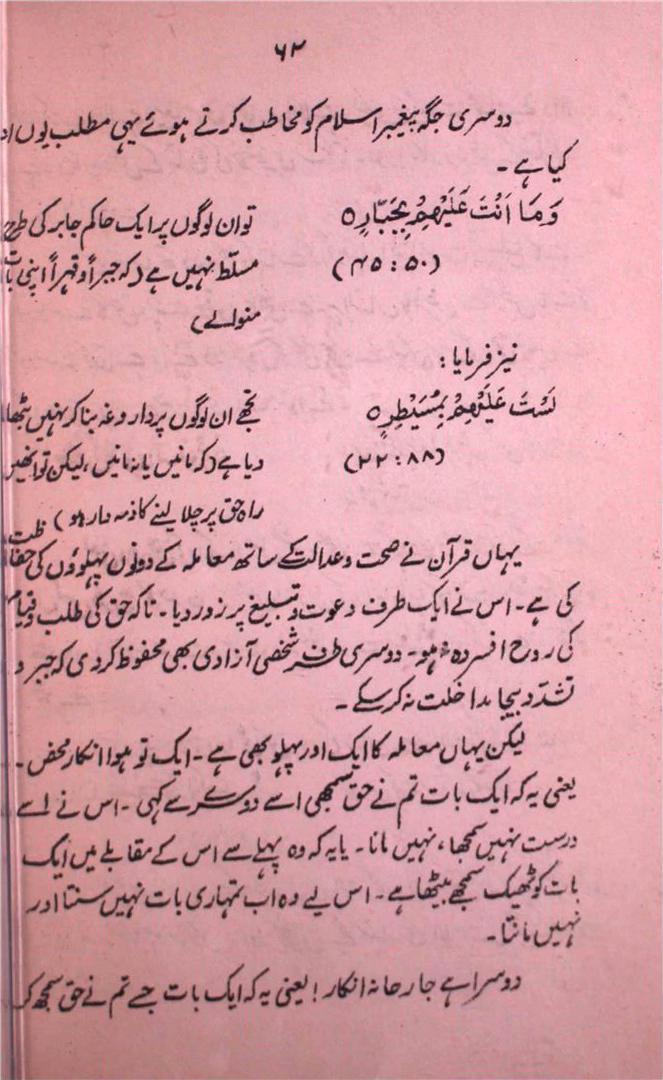 ۶۲
دوسری جگہ پیغمبر اسلام کو مخاطب کرتے ہوئے یہی مطلب یوں
کیا ہے۔
وَمَا اَنْتَ عَلَیْهِمْ بِجَبَّارٍ٥ تو ان لوگوں پر ایک حاکم جابر کی طرح
(۴۵:۵۰) مسلط نہیں ہے (کہ جبراً و قہراً اپنی بات
منوالے)
نیز فرمایا:
لَسْتَ عَلَیْهِمْ بِمُسَیْطِرٍ٥ تجھے ان لوگوں پر داروغہ بنا کر نہیں بٹھا
(۲۲:۸۸) دیا ہے (کہ مانیں یا نہ مانیں، لیکن تو انھیں
راہ حق پر چلا لینے کا ذمہ دار ہو)
یہاں قرآن نے صحت و عدالت کے ساتھ معاملہ کے دونوں پہلوؤں کی حفاظت
کی ہے۔ اس نے ایک طرف دعوت و تبلیغ پر زور دیا۔ تاکہ حق کی طلب و قیام
کی روح افسردہ نہ ہو۔ دوسری طرف شخصی آزادی بھی محفوظ کردی کہ جبر و
تشدد بیجا مداخلت نہ کر سکے۔
لیکن یہاں معاملہ کا ایک اور پہلو بھی ہے۔ ایک تو ہوا انکار محض۔
یعنی یہ کہ ایک بات تم نے حق سمجھی اسے دوسرے سے کہی۔ اس نے اسے
درست نہیں سمجھا، نہیں مانا۔ یا یہ کہ وہ پہلے سے اس کے مقابلے میں ایک
بات کو ٹھیک سمجھے بیٹھا ہے۔ اس لیے وہ اب تمہاری بات نہیں سنتا اور
نہیں مانتا۔
دوسرا ہے جارحانہ انکار! یعنی یہ کہ ایک بات جسے تم نے حق سمجھ کر